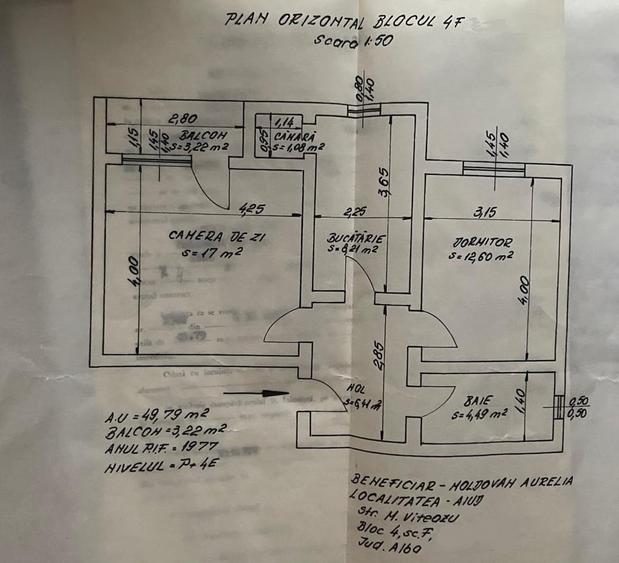 PLAN ORIZONTAL BLOCUL 4F
Scara 1:50
2,80
1,15
1,45
1,40
BALCON
S=3,22 m²
1,14
0,95
CĂMARĂ
S=1,08 m²
0,80
1,40
3,65
1,45
1,40
4,25
CAMERA DE ZI
S=17 m²
4,00
2,25
BUCĂTĂRIE
S=8,21 m²
3,15
DORMITOR
S=12,60 m²
4,00
2,85
HOL
S=6,41 m²
BAIE
S=4,49 m²
1,40
0,50
0,50
A.U = 49,79 m²
BALCON = 3,22 m²
ANUL P.I.F. = 1977
NIVELUL = P+4E
BENEFICIAR - MOLDOVAN AURELIA
LOCALITATEA - AIUD
Str. M. Viteazu
Bloc 4, sc. F,
Jud. Alba